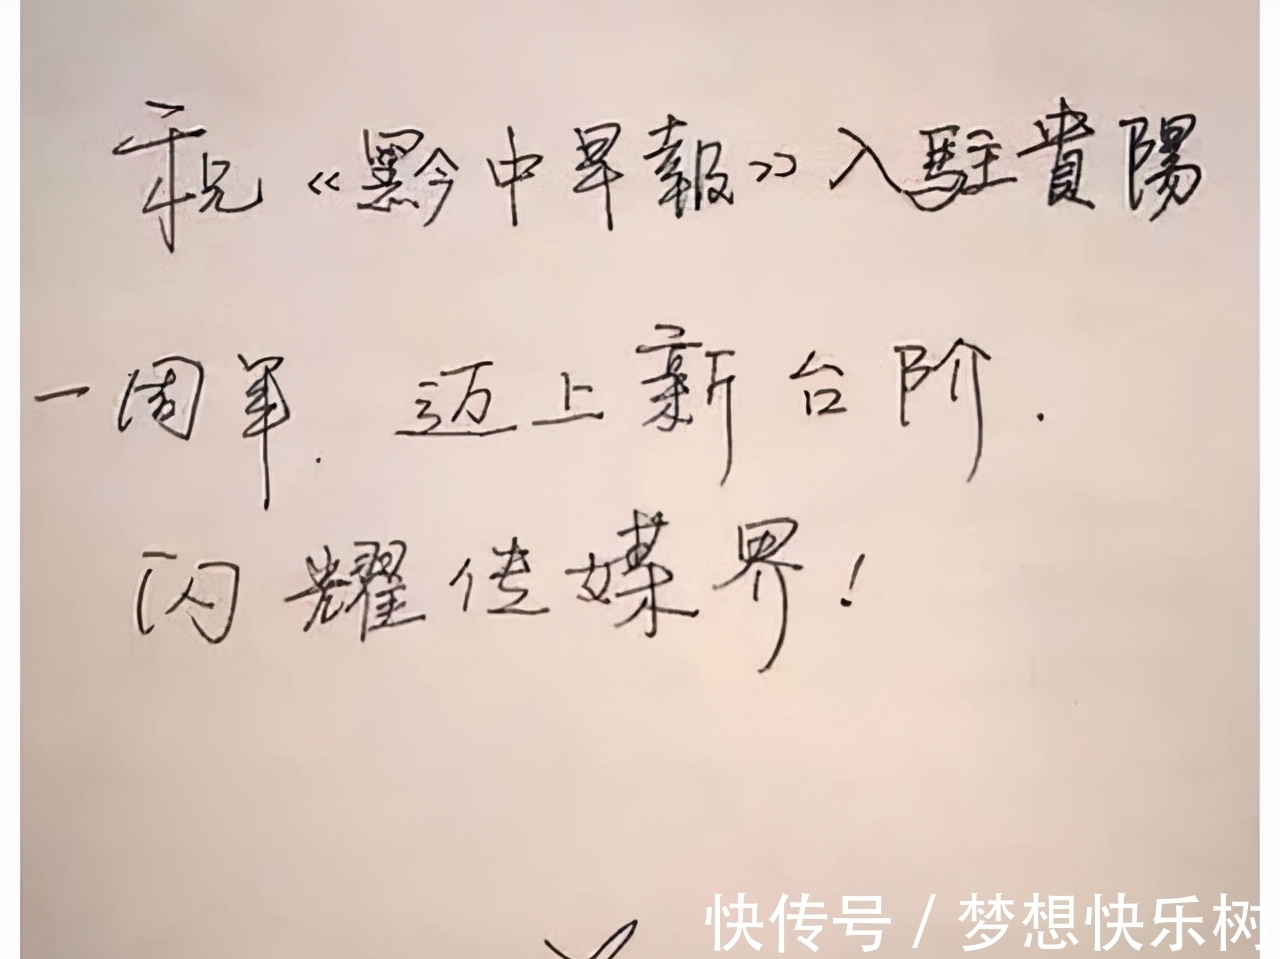 祝《黔中早報》入駐貴陽
一周年.迈上新台阶.
闪耀传媒界!
快传号/梦想快乐树